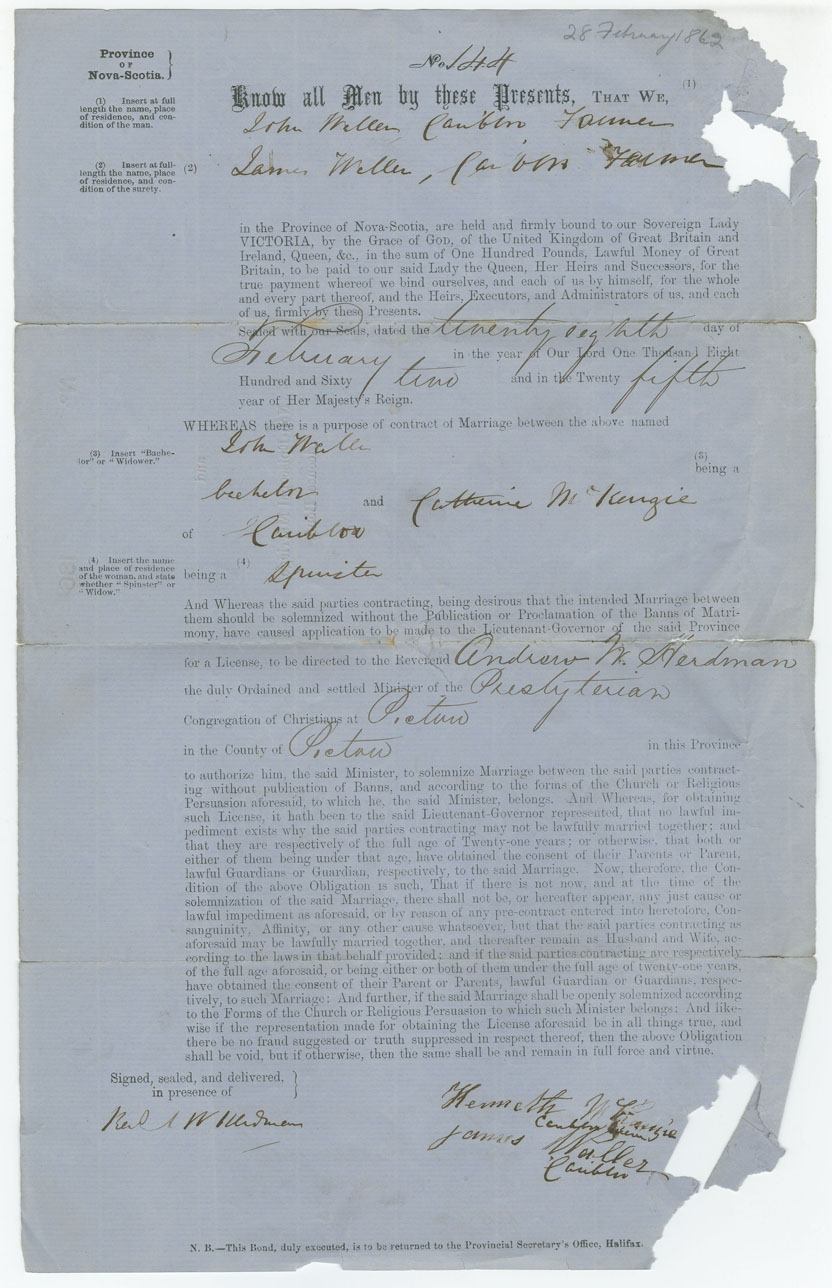 28 February 1862
Province
OF
Nova-Scotia.
No. 144
Know all Men by these Presents, THAT WE, (1)
(1) Insert at full
length the name, place
of residence, and con-
dition of the man.
John Waller, Caribboo Farmer
(2) Insert at full-
length the name, place
of residence, and con-
dition of the surety.
(2) James Waller, Cariboo Farmer
in the Province of Nova-Scotia, are held and firmly bound to our Sovereign Lady
VICTORIA, by the Grace of GOD, of the United Kingdom of Great Britain and
Ireland, Queen, &c., in the sum of One Hundred Pounds, Lawful Money of Great
Britain, to be paid to our said Lady the Queen, Her Heirs and Successors, for the
true payment whereof we bind ourselves, and each of us by himself, for the whole
and every part thereof, and the Heirs, Executors, and Administrators of us, and each
of us, firmly by these Presents.
Sealed with our Seals, dated the twenty eighth day of
February in the year of Our Lord One Thousand Eight
Hundred and Sixty two and in the Twenty fifth
year of Her Majesty's Reign.
WHEREAS there is a purpose of contract of Marriage between the above named
John Waller
(3) Insert "Bache-
lor" or "Widower."
(3)
being a
bachelor and Catherine McKenzie
of Caribboo
(4) Insert the name
and place of residence
of the woman, and state
whether "Spinster" or
"Widow."
being a (4) Spinster
And Whereas the said parties contracting, being desirous that the intended Marriage between
them should be solemnized without the Publication or Proclamation of the Banns of Matri-
mony, have caused application to be made to the Lieutenant-Governor of the said Province
for a License, to be directed to the Reverend Andrew W. Herdman
the duly Ordained and settled Minister of the Presbyterian
Congregation of Christians at Pictou
in the County of Pictou in this Province
to authorize him, the said Minister, to solemnize Marriage between the said parties contract-
ing without publication of Banns, and according to the forms of the Church or Religious
Persuasion aforesaid, to which he, the said Minister, belongs. And Whereas, for obtaining
such License, it hath been to the said Lieutenant-Governor represented, that no lawful im-
pediment exists why the said parties contracting may not be lawfully married together; and
that they are respectively of the full age of Twenty-one years; or otherwise, that both or
either of them being under that age, have obtained the consent of their Parents or Parent,
lawful Guardians or Guardian, respectively, to the said Marriage. Now, therefore, the Con-
dition of the above Obligation is such, That if there is not now, and at the time of the
solemnization of the said Marriage, there shall not be, or hereafter appear, any just cause or
lawful impediment as aforesaid, or by reason of any pre-contract entered into heretofore, Con-
sanguinity, Affinity, or any other cause whatsoever, but that the said parties contracting as
aforesaid may be lawfully married together, and thereafter remain as Husband and Wife, ac-
cording to the laws in that behalf provided; and if the said parties contracting are respectively
of the full age aforesaid, or being either or both of them under the full age of twenty-one years,
have obtained the consent of their Parent or Parents, lawful Guardian or Guardians, respec-
tively, to such Marriage: And further, if the said Marriage shall be openly solemnized according
to the Forms of the Church or Religious Persuasion to which such Minister belongs: And like-
wise if the representation made for obtaining the License aforesaid be in all things true, and
there be no fraud suggested or truth suppressed in respect thereof, then the above Obligation
shall be void, but if otherwise, then the same shall be and remain in full force and virtue.
Signed, sealed, and delivered,
in presence of
Kenneth
Revd A W Herdman
James Waller
Cariboo
N. B.—This Bond, duly executed, is to be returned to the Provincial Secretary's Office, Halifax.